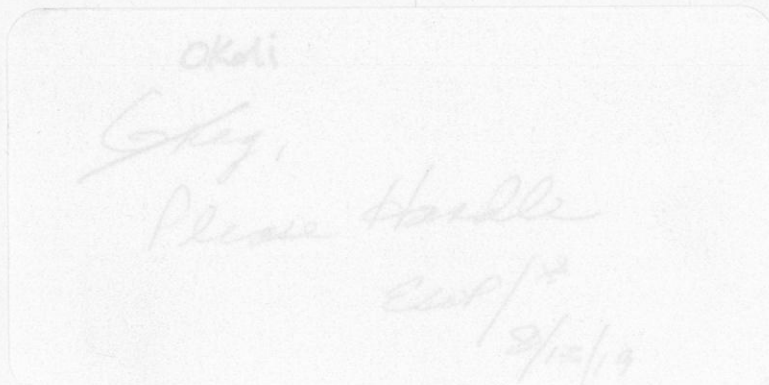 Okoli
Greg,
Please Handle
8/12/19